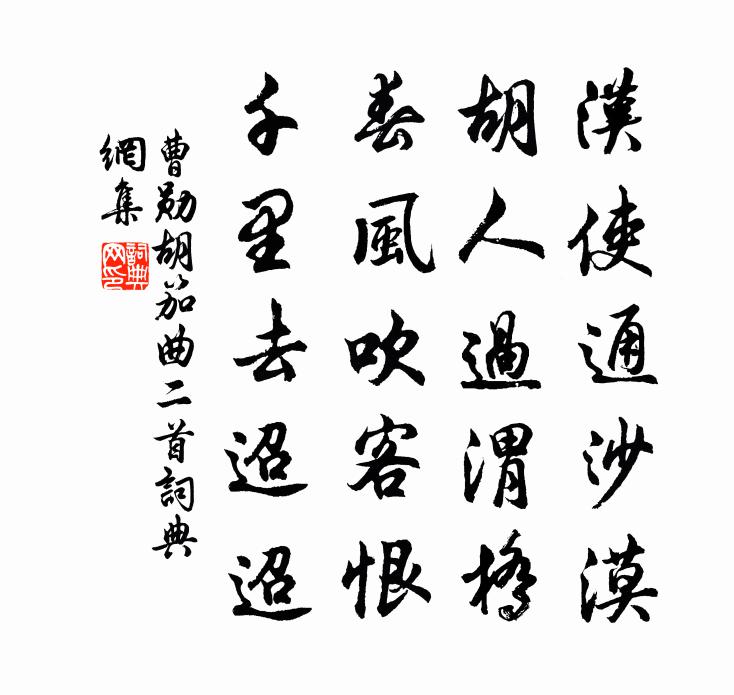 漢使通沙漠
胡人過渭橋
春風吹客恨
千里去迢迢
曹勛胡笳曲二首詞典
網集
詞典
网印